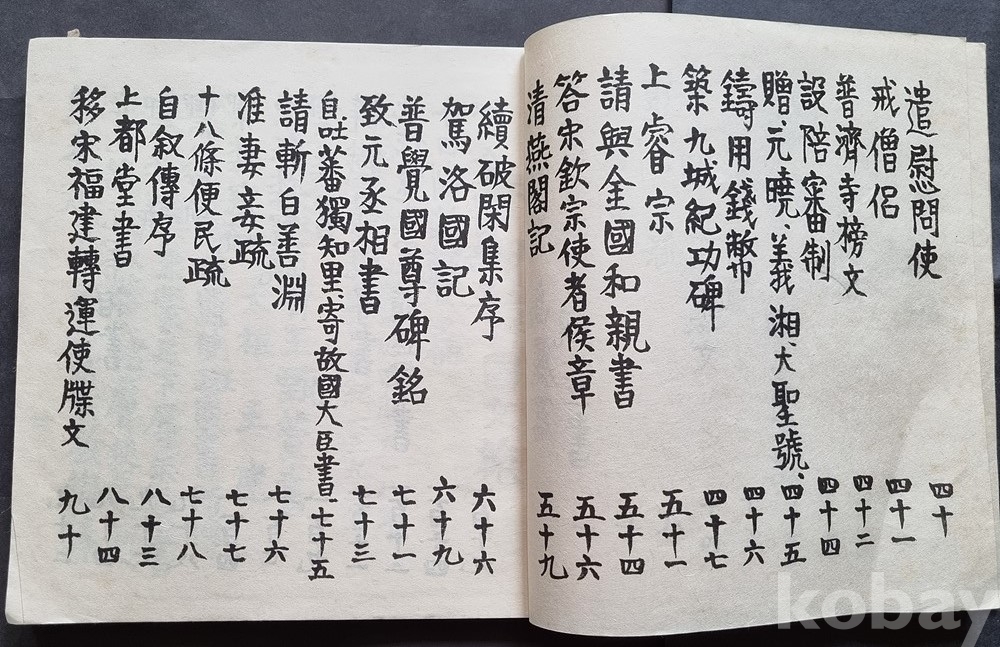 遣慰問使 四十
戒僧侶 四十一
普濟寺榜文 四十二
設陪審制 四十四
贈、元曉、義湘、大聖號、 四十五
鑄用錢幣 四十六
築九城紀功碑 四十七
上睿宗 五十一
請與金國和親書 五十四
答宋欽宗使者侯章 五十六
清燕閣記 五十九
續破閑集序 六十六
駕洛國記 六十九
普覺國尊碑銘 七十一
致元丞相書 七十三
自吐蕃獨知里、寄故國大臣書、 七十五
請斬白善淵 七十六
准妻妾疏 七十七
十八條便民疏 七十八
自叙傳序 八十三
上都堂書 八十四
移宋福建轉運使牒文 九十
kobay